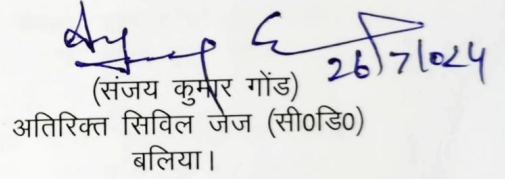 26/7/024
(संजय कुमार गोंड)
अतिरिक्त सिविल जेज (सी०डि०)
बलिया।